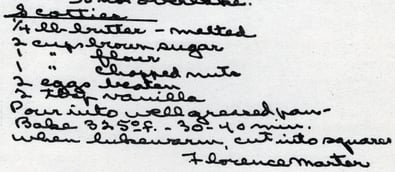 To not overbake.
Scotties
1/4 lb butter - malted
2 cups brown sugar
1 " flour
1 " chopped nuts
2 eggs beaten
2 tsp vanilla
Pour into well greased pan -
Bake 325° f. - 30 - 40 min.
when lukewarm, cut into squares
Florence Marter